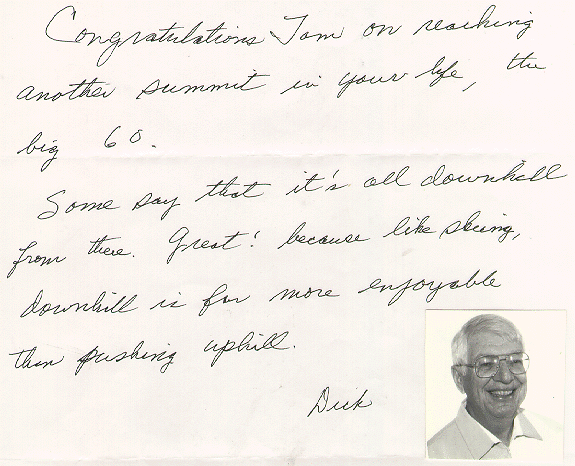 Congratulations Tom on reaching
another summit in your life, the
big 60.
Some say that it's all downhill
from there. Great! because like skiing,
downhill is far more enjoyable
than pushing uphill.
Dick